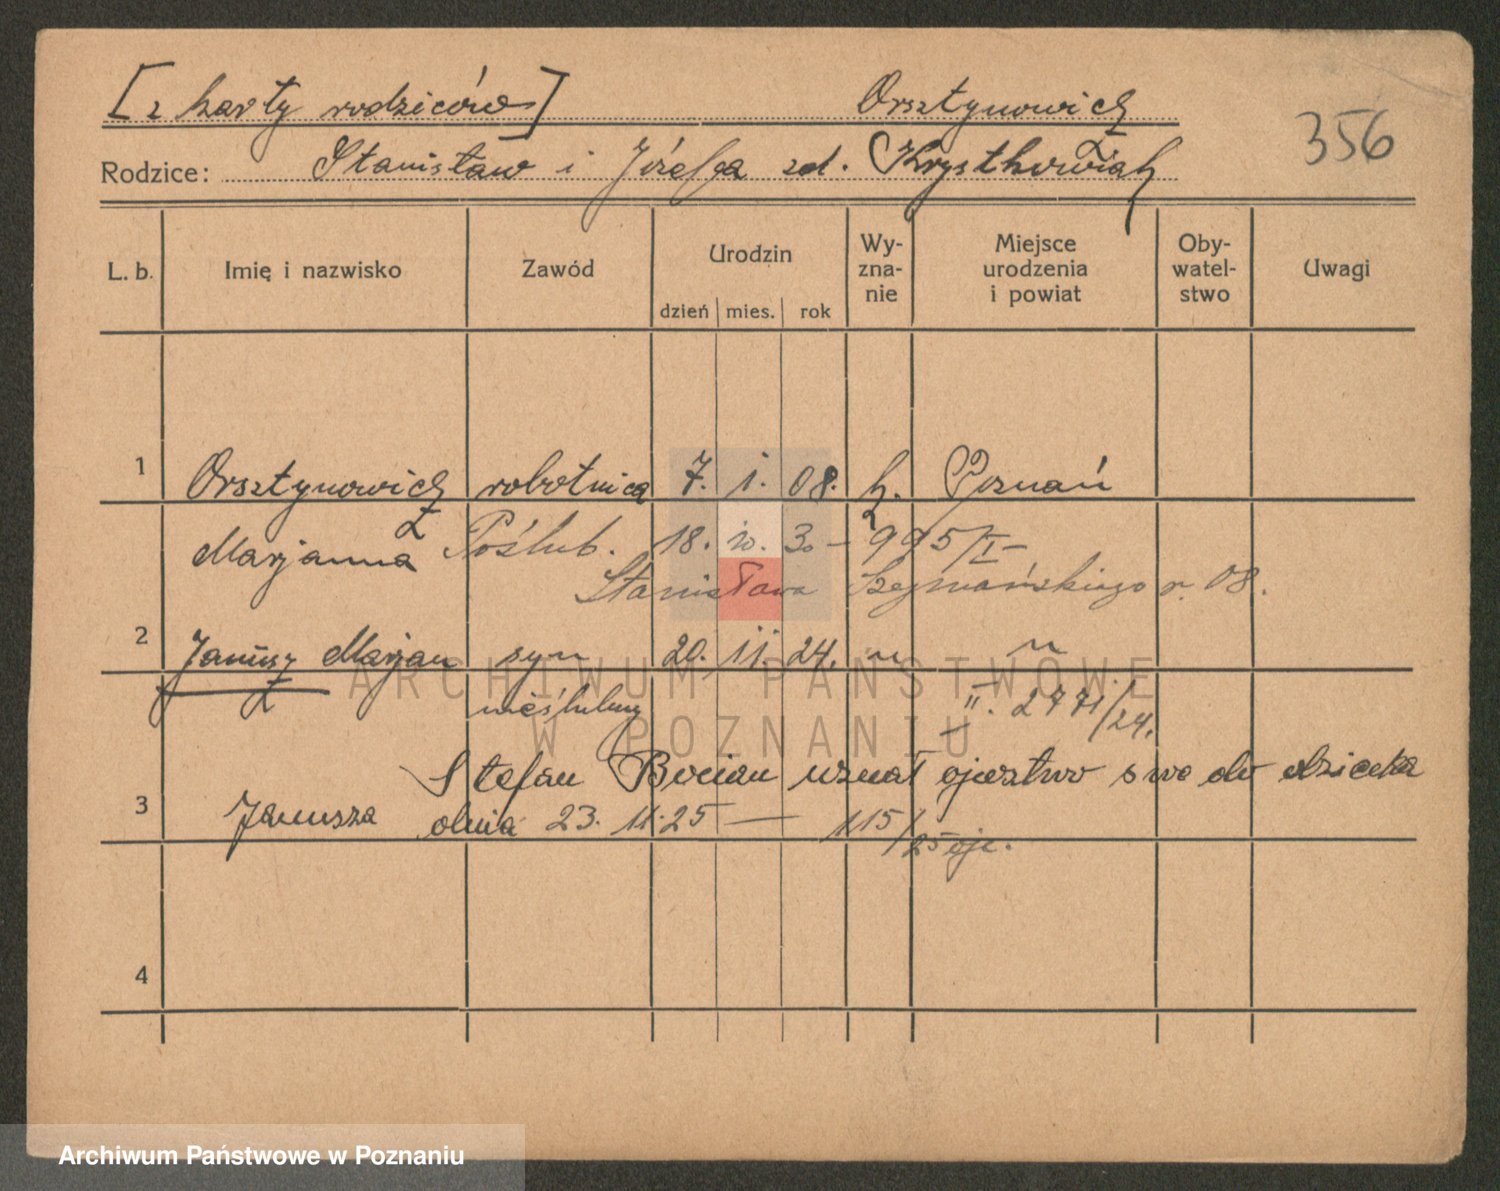 [z karty rodziców] Orsztynowicz
356
Rodzice: Stanisław i Józefa zd. Krystkowiak
L. b. Imię i nazwisko Zawód Urodzin Wy- Miejsce Oby- Uwagi
zna- urodzenia watel-
nie i powiat stwo
dzień mies. rok
1 Orsztynowicz robotnica 7. i. 08. k. Poznań
Marjanna Poślub. 18. 30 – 995/I –
Stanisława Szymańskiego r. 08.
2 Janusz Marjan syn 20. 11. 24. " "
nieślubny II. 2771/24.
ARCHIWUM PAŃSTWOWE
W POZNANIU
Stefan Bocian uznał ojcostwo swe do dziecka
3 Janusza dnia 23. 11. 25 — 115/25 ojc.
4
Archiwum Państwowe w Poznaniu